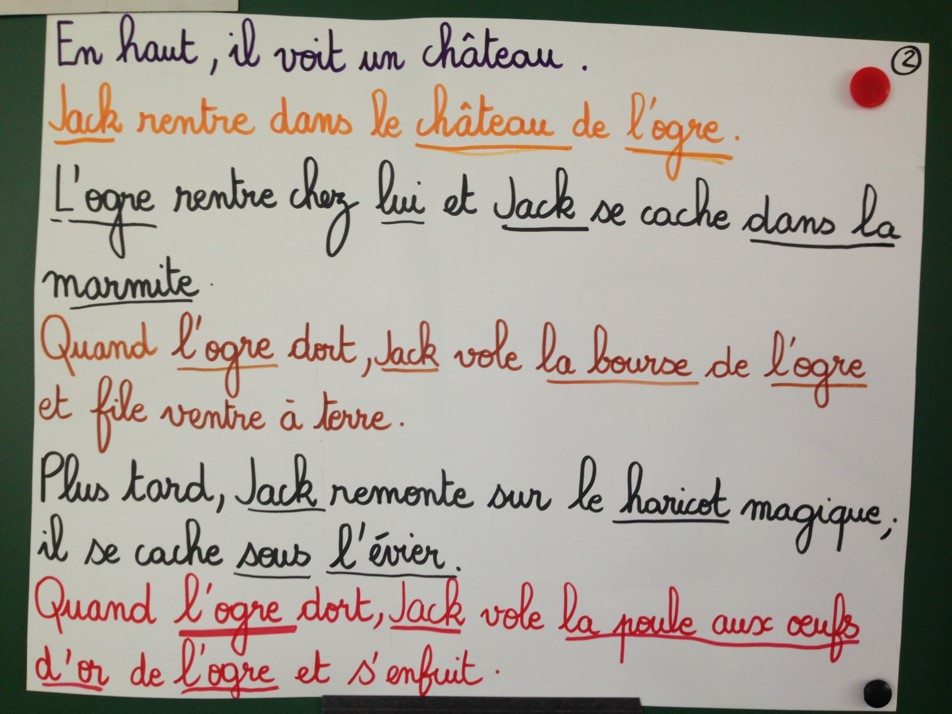 ②
En haut, il voit un château.
Jack rentre dans le château de l'ogre.
L'ogre rentre chez lui et Jack se cache dans la
marmite.
Quand l'ogre dort, Jack vole la bourse de l'ogre
et file ventre à terre.
Plus tard, Jack remonte sur le haricot magique,
il se cache sous l'évier.
Quand l'ogre dort, Jack vole la poule aux œufs
d'or de l'ogre et s'enfuit.